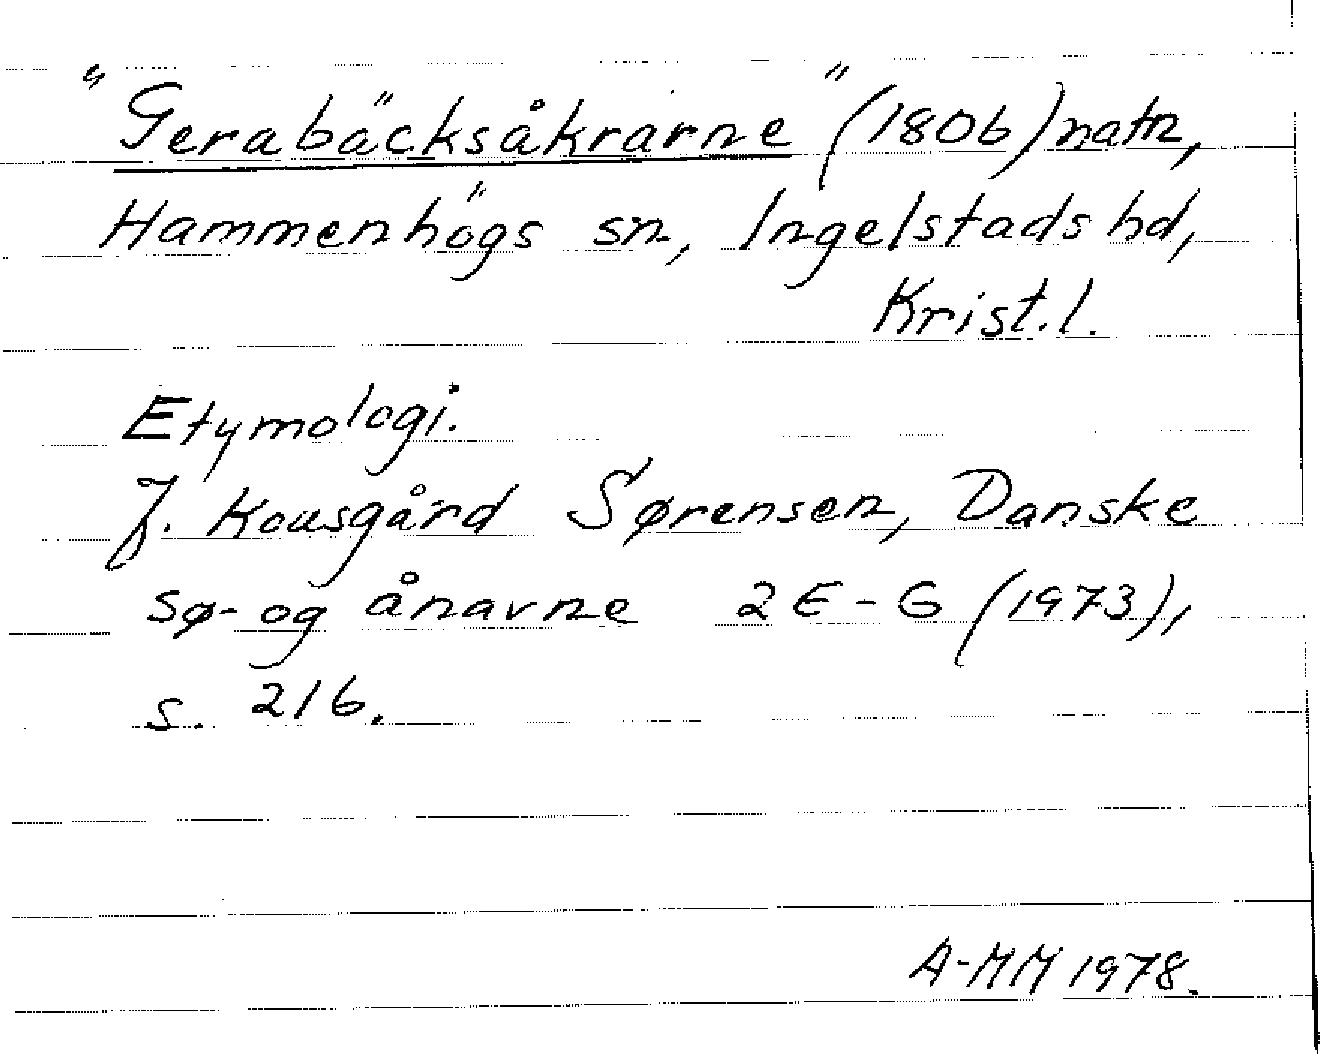 "Gerabäcksåkrarne" (1806) natn,
Hammenhögs sn, Ingelstads hd,
Krist. l.
Etymologi.
J. Kousgård Sørensen, Danske
sø- og ånavne 2 E-G (1973),
s. 216.
A-MM 1978.